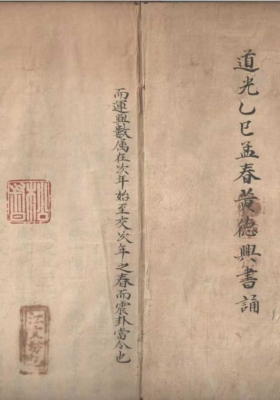 道光乙巳孟春黄德興書誦
而運與數屬在次年始至交次年之春而震卦當令也